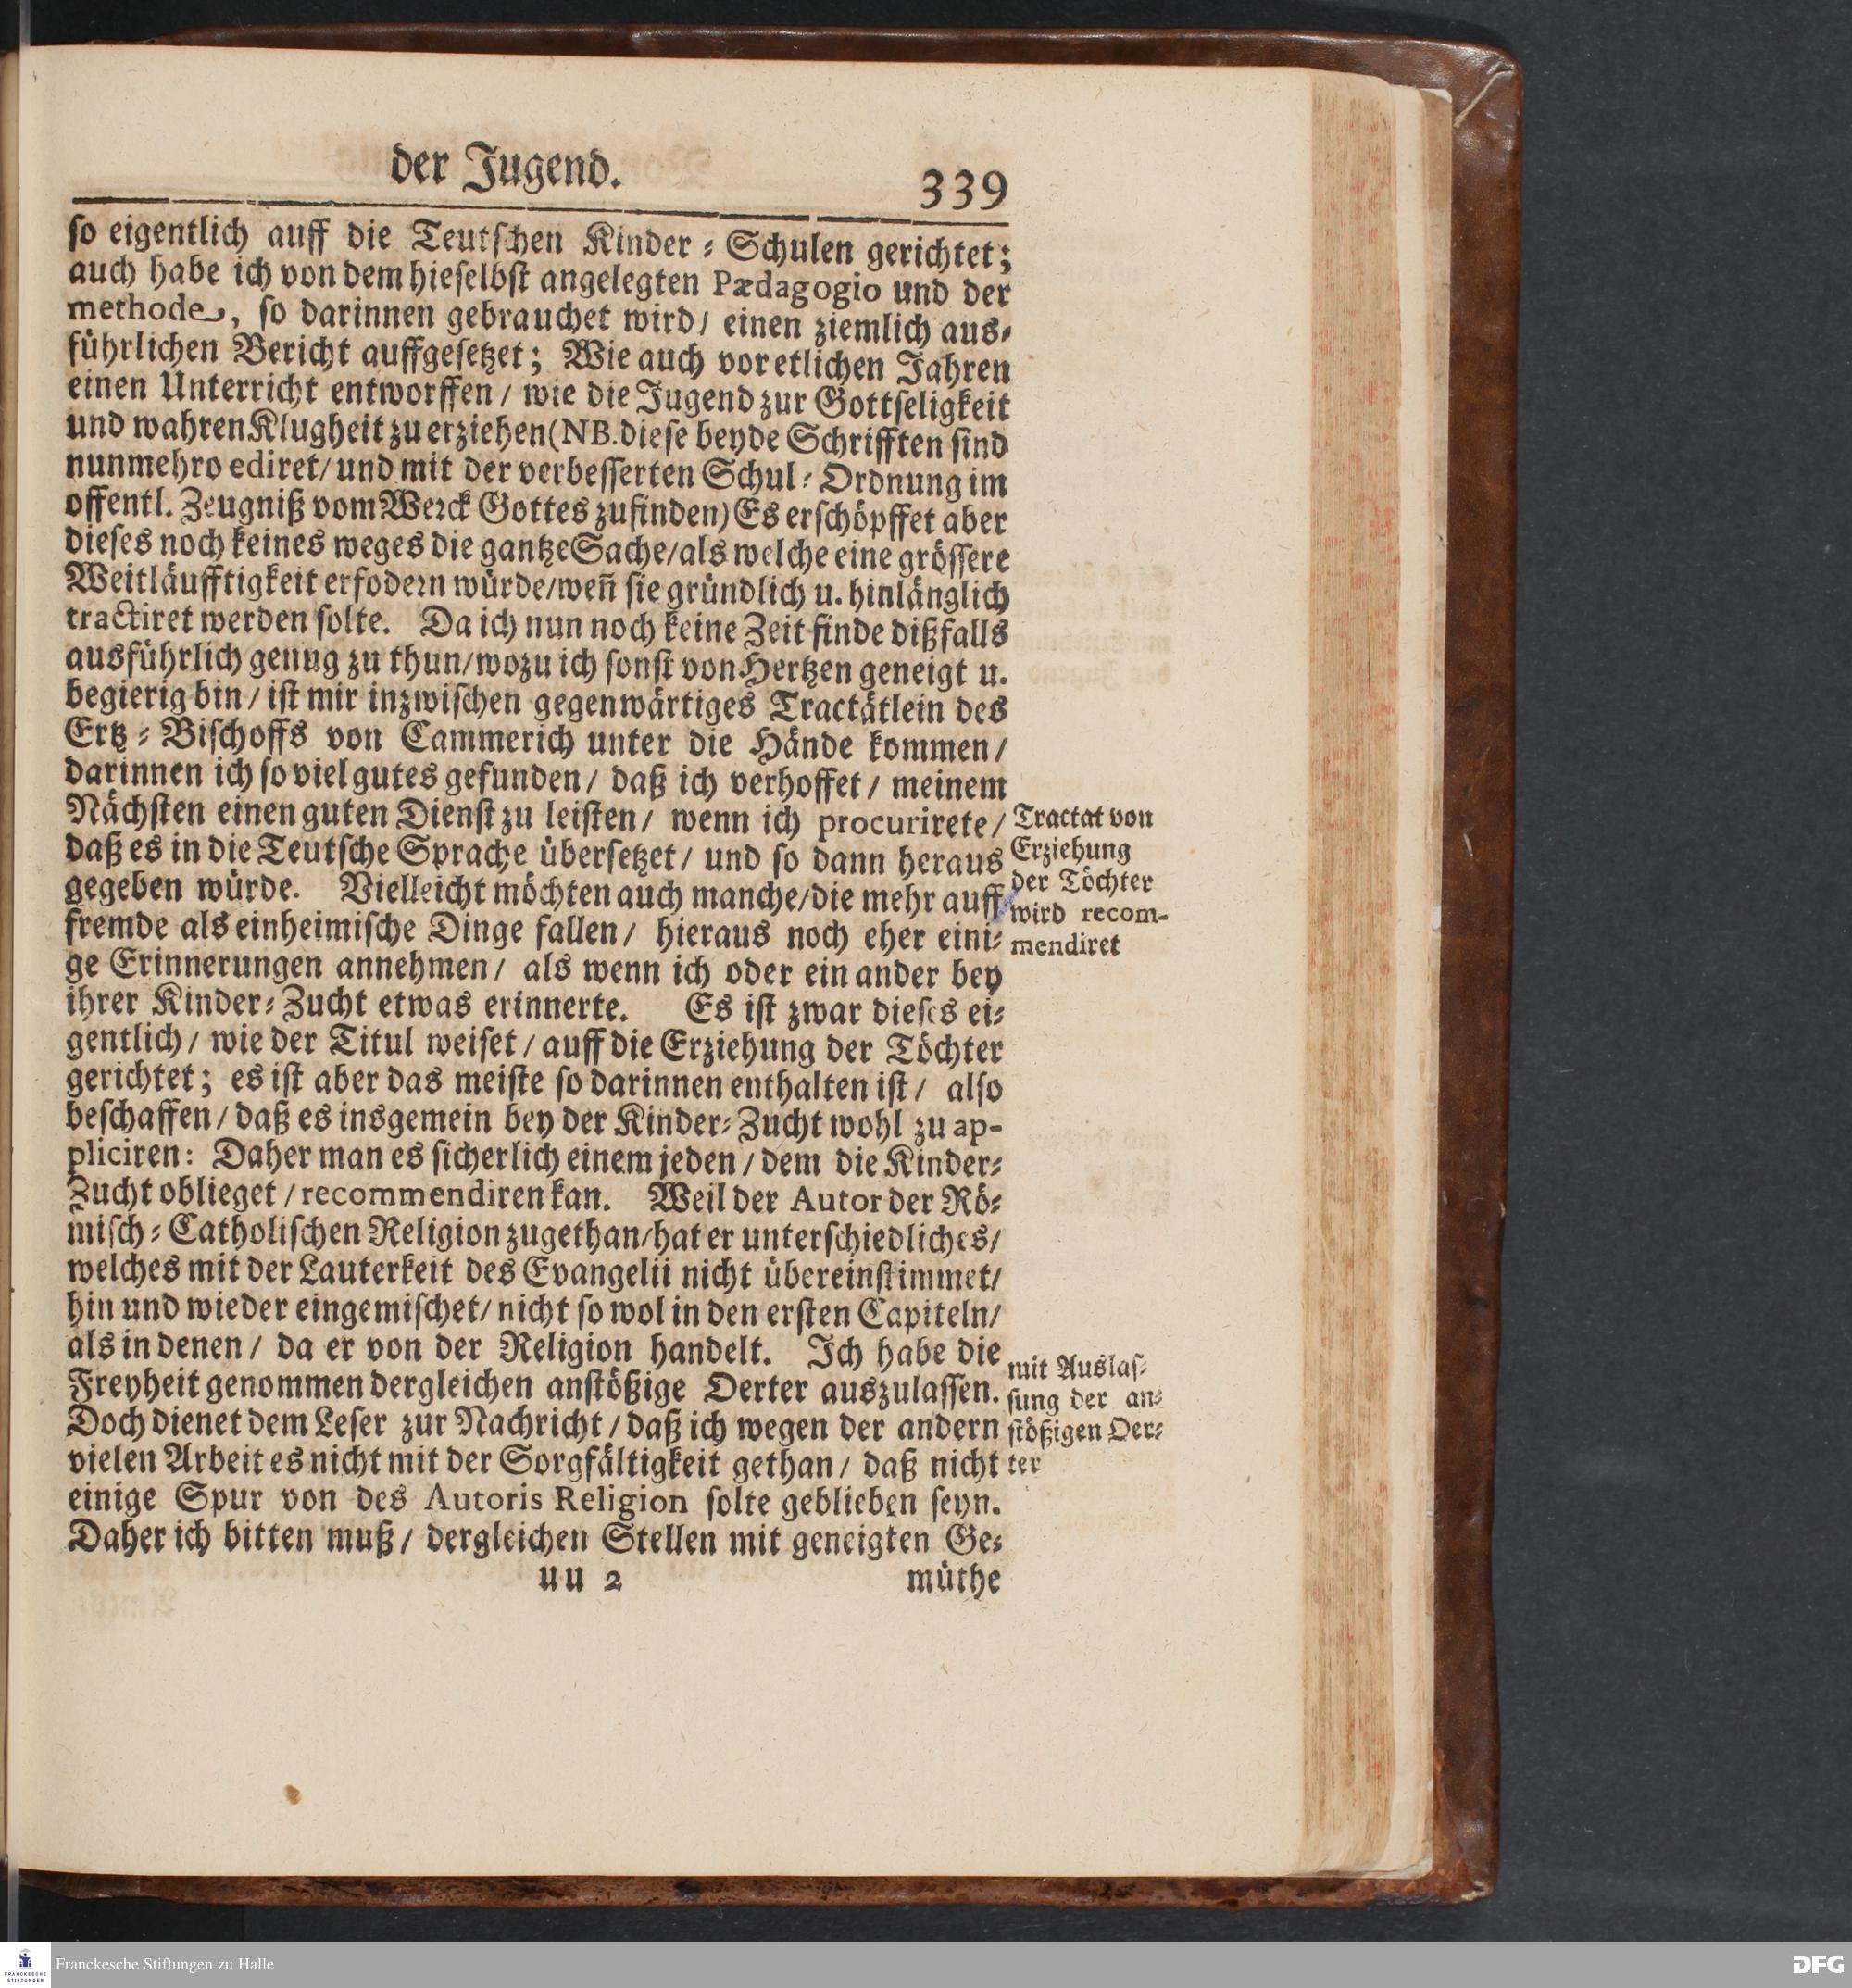 der Jugend.
339
so eigentlich auff die Teutschen Kinder-Schulen gerichtet;
auch habe ich von dem hieselbst angelegten Pædagogio und der
methode, so darinnen gebrauchet wird/ einen ziemlich aus-
führlichen Bericht auffgesetzet; Wie auch vor etlichen Jahren
einen Unterricht entworffen/ wie die Jugend zur Gottseligkeit
und wahren Klugheit zu erziehen (NB. diese beyde Schrifften sind
nunmehro ediret/ und mit der verbesserten Schul-Ordnung im
offentl. Zeugniß vom Werck Gottes zufinden) Es erschöpffet aber
dieses noch keines weges die gantze Sache/ als welche eine grössere
Weitläufftigkeit erfodern würde/ weñ sie gründlich u. hinlänglich
tractiret werden solte. Da ich nun noch keine Zeit finde dißfalls
ausführlich genug zu thun/ wozu ich sonst von Hertzen geneigt u.
begierig bin/ ist mir inzwischen gegenwärtiges Tractätlein des
Ertz-Bischoffs von Cammerich unter die Hände kommen/
darinnen ich so viel gutes gefunden/ daß ich verhoffet/ meinem
Nächsten einen guten Dienst zu leisten/ wenn ich procurirete/
daß es in die Teutsche Sprache übersetzet/ und so dann heraus
gegeben würde. Vielleicht möchten auch manche/ die mehr auff
fremde als einheimische Dinge fallen/ hieraus noch eher eini-
ge Erinnerungen annehmen/ als wenn ich oder ein ander bey
ihrer Kinder-Zucht etwas erinnerte. Es ist zwar dieses ei-
gentlich/ wie der Titul weiset/ auff die Erziehung der Töchter
gerichtet; es ist aber das meiste so darinnen enthalten ist/ also
beschaffen/ daß es insgemein bey der Kinder-Zucht wohl zu ap-
pliciren: Daher man es sicherlich einem jeden/ dem die Kinder-
Zucht oblieget/ recommendiren kan. Weil der Autor der Rö-
misch-Catholischen Religion zugethan/ hat er unterschiedliches/
welches mit der Lauterkeit des Evangelii nicht übereinstimmet/
hin und wieder eingemischet/ nicht so wol in den ersten Capiteln/
als in denen/ da er von der Religion handelt. Ich habe die
Freyheit genommen dergleichen anstößige Oerter auszulassen.
Doch dienet dem Leser zur Nachricht/ daß ich wegen der andern
vielen Arbeit es nicht mit der Sorgfältigkeit gethan/ daß nicht
einige Spur von des Autoris Religion solte geblieben seyn.
Daher ich bitten muß/ dergleichen Stellen mit geneigten Ge-
uu 2
müthe
Tractat von
Erziehung
der Töchter
wird recom-
mendiret
mit Auslas-
sung der an-
stößigen Oer-
ter
FRANCKESCHE
STIFTUNGEN
Franckesche Stiftungen zu Halle
DFG